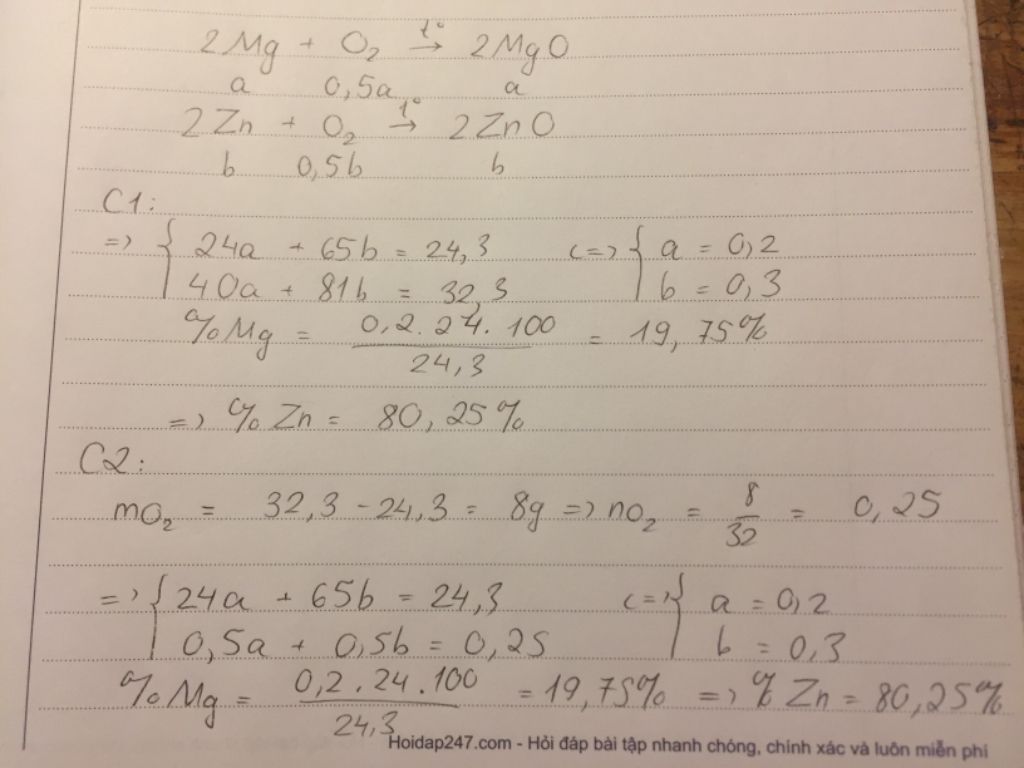 2Mg + O₂ →(t°) 2MgO
a 0,5a a
2Zn + O₂ →(t°) 2ZnO
b 0,5b b
C1:
=> { 24a + 65b = 24,3 <=> { a = 0,2
40a + 81b = 32,3 b = 0,3
%Mg = 0,2.24.100 / 24,3 = 19,75%
=> %Zn = 80,25%
C2:
mO₂ = 32,3 - 24,3 = 8g => nO₂ = 8/32 = 0,25
=> { 24a + 65b = 24,3 <=> { a = 0,2
0,5a + 0,5b = 0,25 b = 0,3
%Mg = 0,2.24.100 / 24,3 = 19,75% => %Zn = 80,25%
Hoidap247.com - Hỏi đáp bài tập nhanh chóng, chính xác và luôn miễn phí